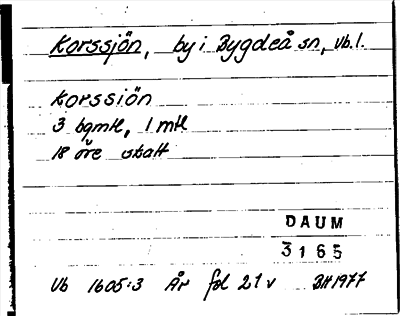 Korssjön, by i Bygdeå sn, Vb. l.
Korssiön
3 bgmtl, 1 mtl
18 öre skatt
DAUM
3165
Vb 1605:3 År fol 21v BH 1977